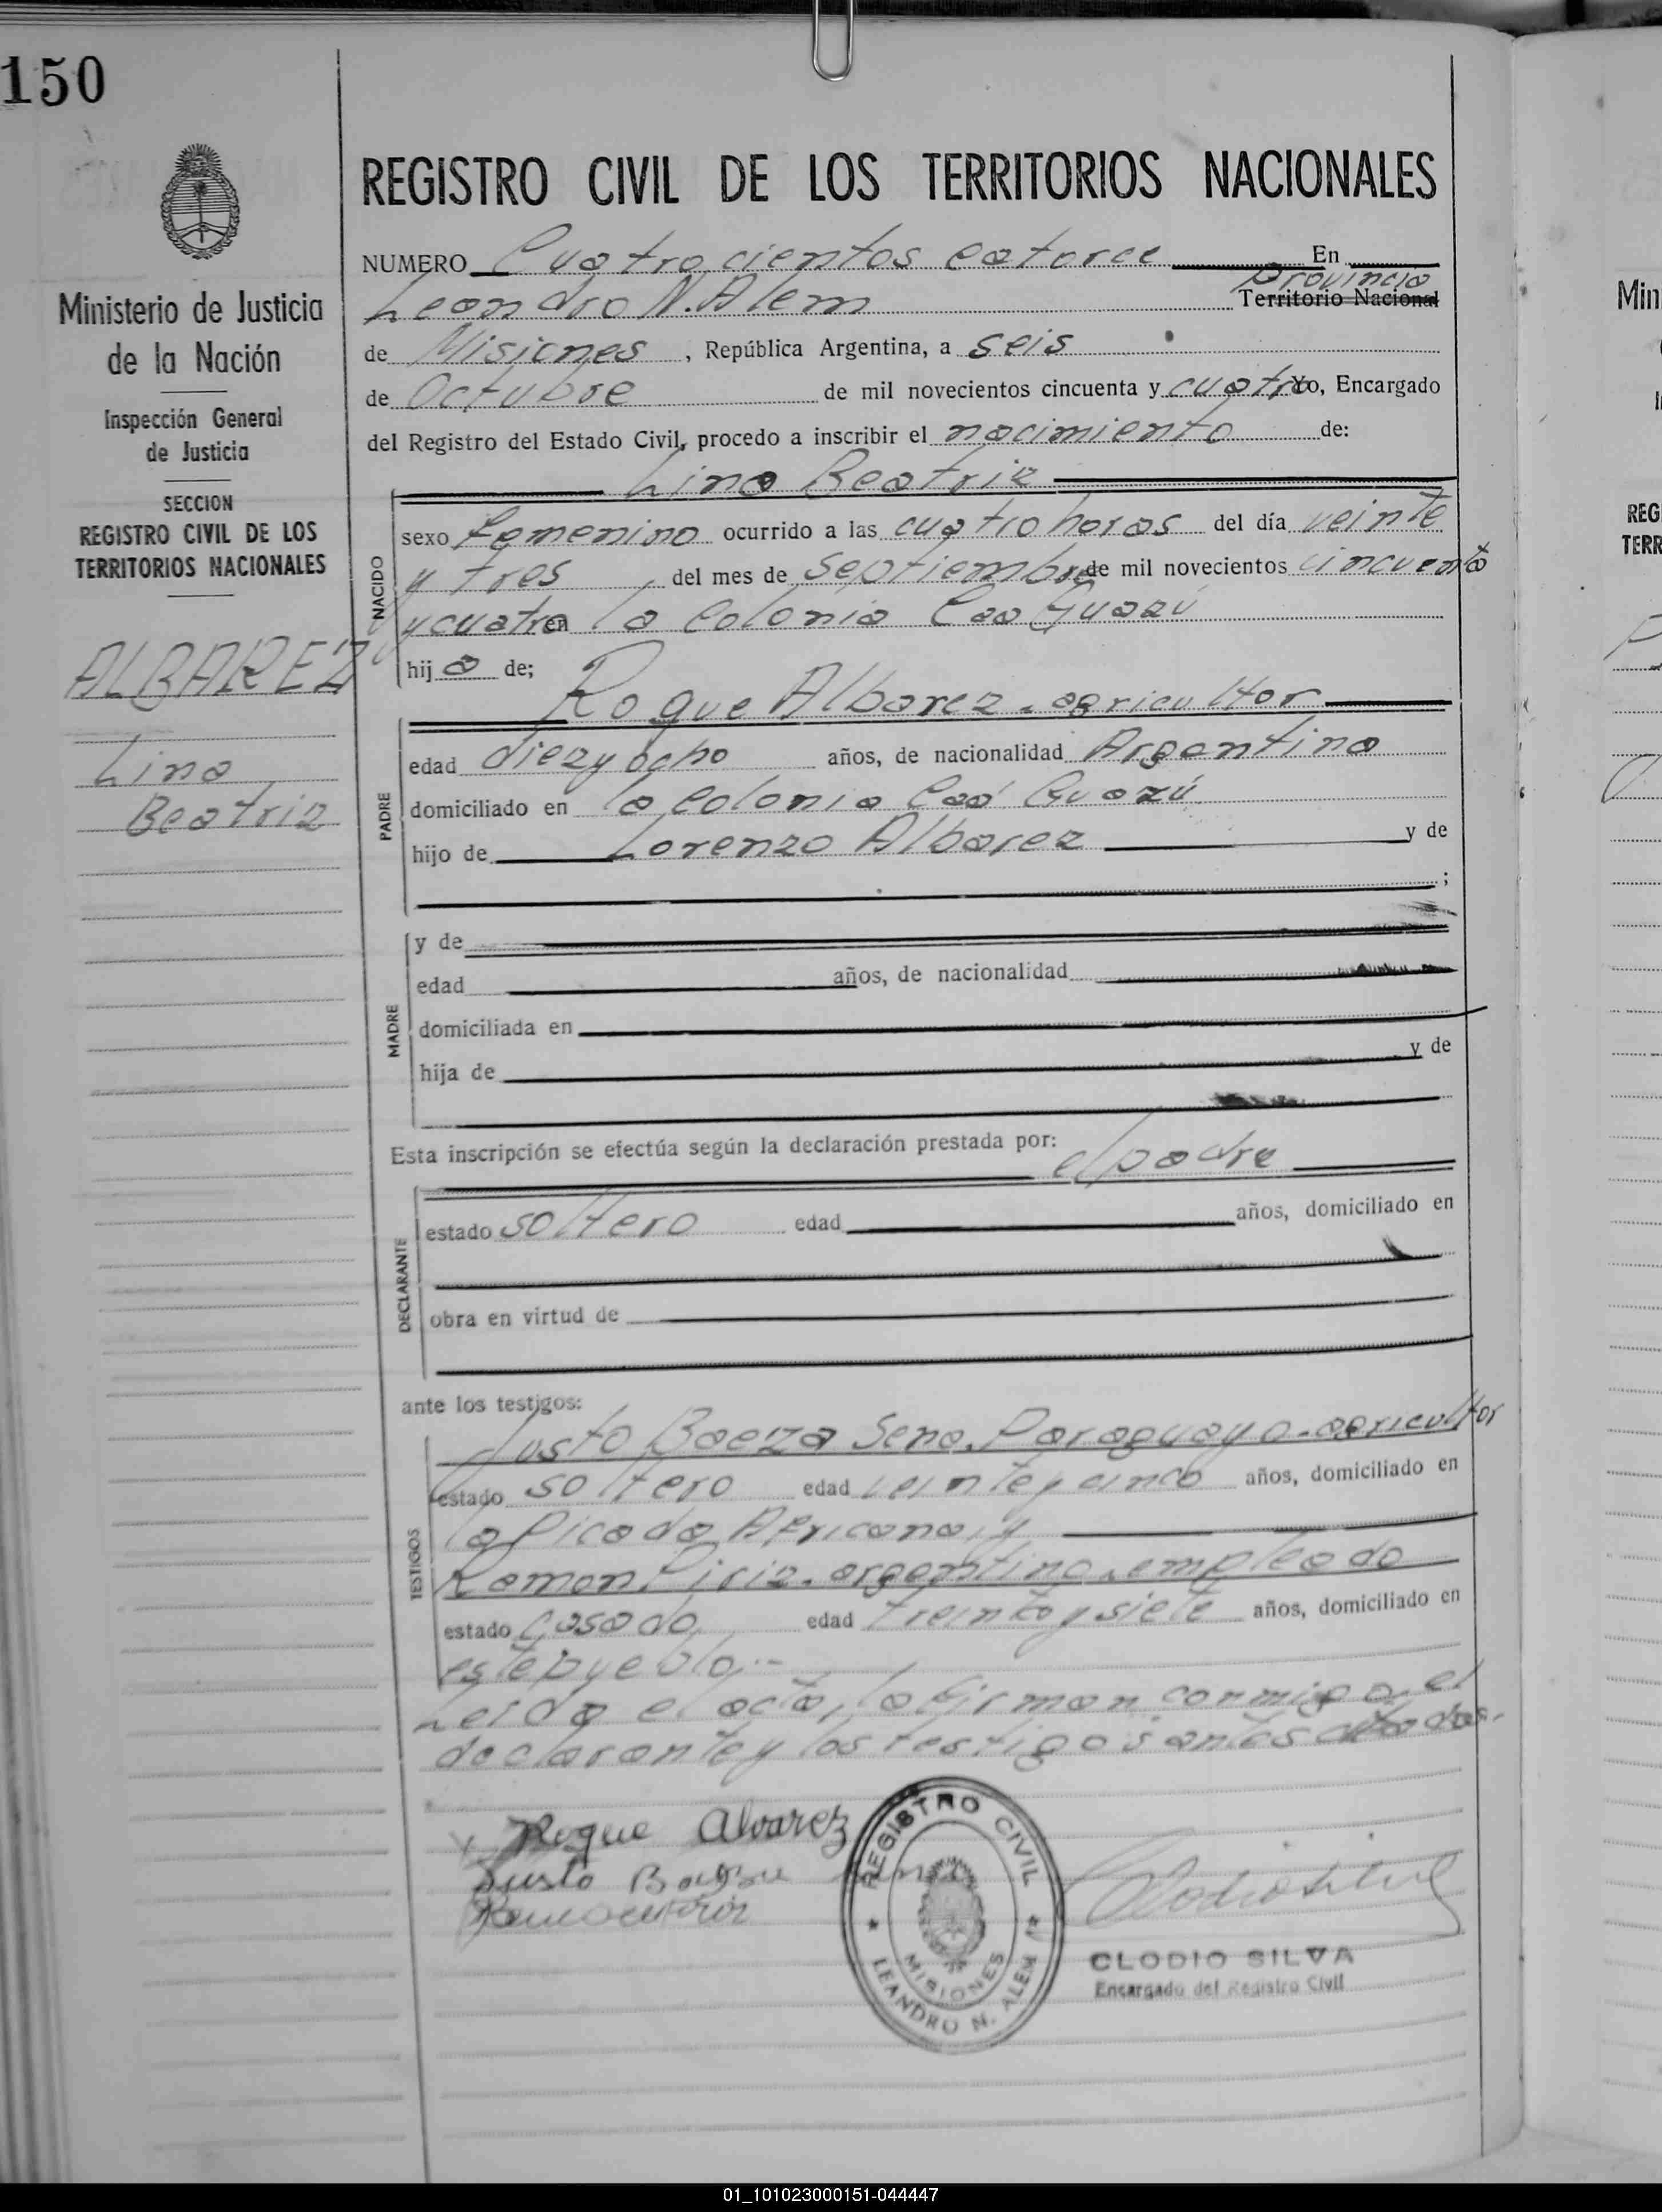 150
REGISTRO CIVIL DE LOS TERRITORIOS NACIONALES
NUMERO Cuatrocientos catorce En
Leandro N. Alem Provincia Territorio Nacional
de Misiones, República Argentina, a seis
de Octubre de mil novecientos cincuenta y cuatro Yo, Encargado
del Registro del Estado Civil, procedo a inscribir el nacimiento de:
Lina Beatriz
NACIDO
sexo femenino ocurrido a las cuatro horas del día veinte
y tres, del mes de Septiembre de mil novecientos cincuenta
y cuatro en la Colonia Caa Guazú
hija de;
Roque Albarez. agricultor
PADRE
edad diez y ocho años, de nacionalidad Argentina
domiciliado en la Colonia Caá Guazú
hijo de Lorenzo Albarez y de
;
MADRE
y de
edad años, de nacionalidad
domiciliada en
hija de y de
Esta inscripción se efectúa según la declaración prestada por: el padre
DECLARANTE
estado soltero edad años, domiciliado en
obra en virtud de
ante los testigos:
TESTIGOS
Justo Baeza Sena. Paraguayo. agricultor
estado soltero edad veinte y cinco años, domiciliado en
la Picada Africana, y
Ramon Piriz. argentino. empleado
estado casado, edad treinta y siete años, domiciliado en
este pueblo.--
Leida el acta, la firman conmigo, el
declarante y los testigos antes citados.
Roque Alvarez
Justo Baeza
CLODIO SILVA
Encargado del Registro Civil
REGISTRO CIVIL
MISIONES
LEANDRO N. ALEM
Ministerio de Justicia
de la Nación
Inspección General
de Justicia
SECCION
REGISTRO CIVIL DE LOS
TERRITORIOS NACIONALES
ALBAREZ
Lina
Beatriz
Min
REG
TERR
01_101023000151-044447